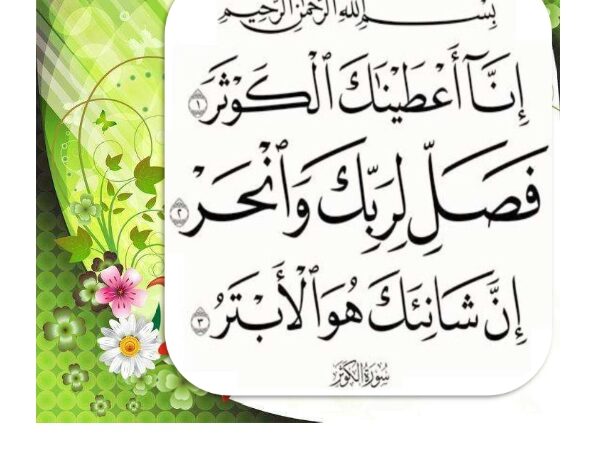 بِسْمِ اللَّهِ الرَّحْمَٰنِ الرَّحِيمِ
إِنَّآ أَعْطَيْنَاكَ ٱلْكَوْثَرَ ١
فَصَلِّ لِرَبِّكَ وَٱنْحَرْ ٢
إِنَّ شَانِئَكَ هُوَ ٱلْأَبْتَرُ ٣
سُورَةُ الكَوْثَرِ